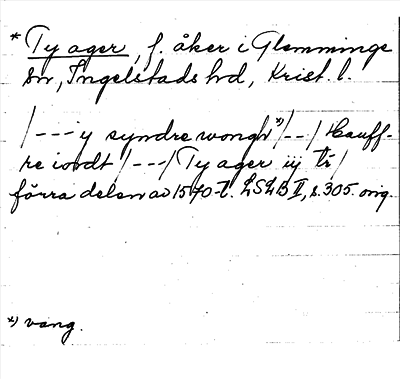 * Ty ager, f. åker i Glemminge
sn, Ingelstads hd, Krist. l.
/---y syndre wongh *)/--/ Hauff-
re iordt /---/ Ty ager iij
förra delen av 1570-t. LSLB II, s. 305. orig.
*) vang.